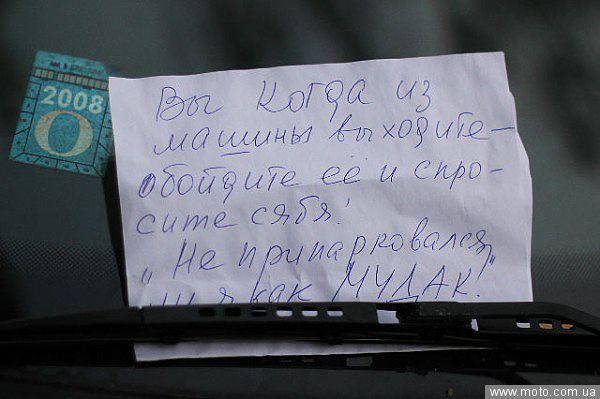 2008
О
Вы когда из
машины выходите—
обойдите её и спро-
сите сябя!
„Не припарковался
ли я как МУДАК!"
www.moto.com.ua